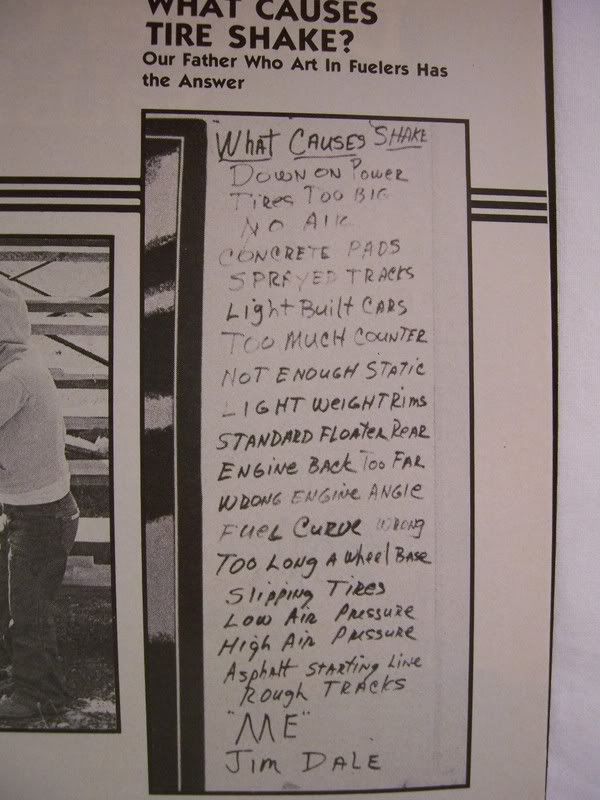 WHAT CAUSES
TIRE SHAKE?
Our Father Who Art In Fuelers Has
the Answer
"What Causes Shake
Down on Power
Tires Too Big
No Air
Concrete Pads
Sprayed Tracks
Light Built Cars
Too Much Counter
Not Enough Static
Light Weight Rims
Standard Floater Rear
Engine Back Too Far
Wrong Engine Angle
Fuel Curve Wrong
Too Long A Wheel Base
Slipping Tires
Low Air Pressure
High Air Pressure
Asphalt Starting Line
Rough Tracks
"ME"
Jim Dale